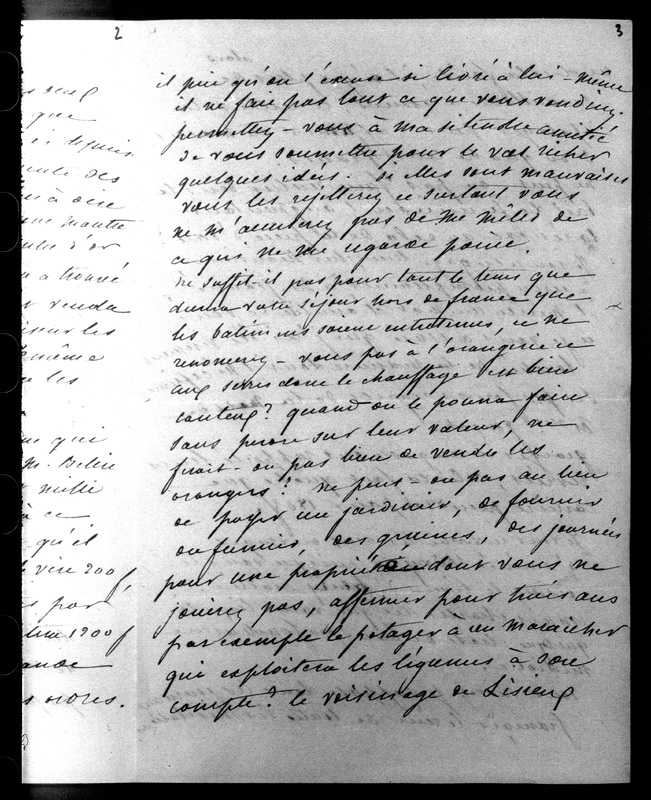 2
3
ous seul
que
depuis
des
à dire
une montre
d'or
a trouvé
vendu
sur les
même
les
qui
M.
mille
à ce
qu'il
vire 200 f,
par
1900 f
ordres.
il prie qu'on l'excuse si livré à lui-même
il ne fait pas tout ce que vous voudriez.
permettez-vous à ma si tendre amitié
de vous soumettre pour le val richer
quelques idées. Si elles sont mauvaises
vous les rejetterez et surtout vous
ne m'accuserez pas de me mêler de
ce qui ne me regarde point.
ne suffit-il pas pour tout le tems que
durera votre séjour hors de france que
les batimens soient entretenus, et ne
renoncerez-vous pas à l'orangerie et
aux serres dont le chauffage est bien
couteux? quand on le pourra faire
sans perdre sur leur valeur, ne
ferait-on pas bien de vendre les
orangers? ne peut-on pas au lieu
de payer un jardinier, de fournir
du fumier, des graines, des journées
pour une propriété dont vous ne
jouirez pas, affermer pour trois ans
par exemple le potager à un maraicher
qui exploitera les légumes à son
compte? le voisinage de Lisieux